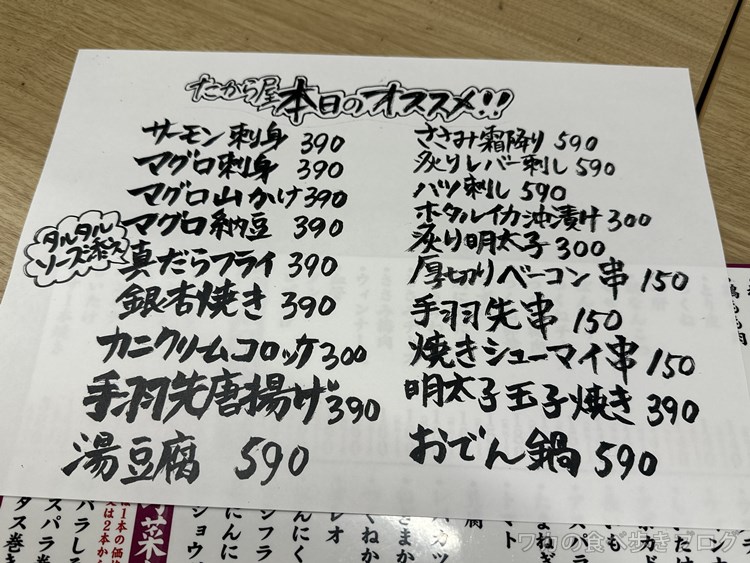 たから屋 本日のオススメ!!
サーモン刺身 390
マグロ刺身 390
マグロ山かけ 390
マグロ納豆 390
タルタル
ソース添え
真だらフライ 390
銀杏焼き 390
カニクリームコロッケ 300
手羽先唐揚げ 390
湯豆腐 590
ささみ霜降り 590
炙りレバー刺し 590
ハツ刺し 590
ホタルイカ沖漬け 300
炙り明太子 300
厚切りベーコン串 150
手羽先串 150
焼きシューマイ串 150
明太子玉子焼き 390
おでん鍋 590
ワカの食べ歩きブログ